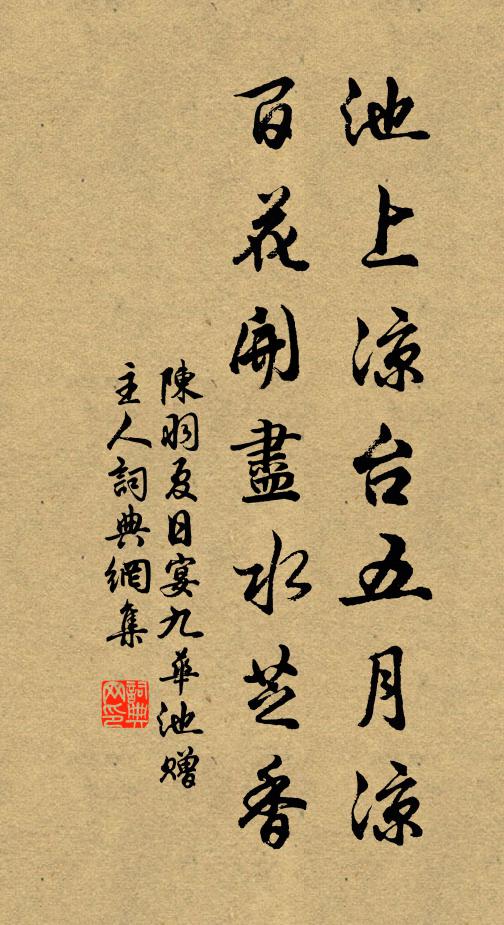 池上凉台五月凉
百花開盡水芝香
陳羽夏日宴九華池贈
主人詞典網集
詞典網印